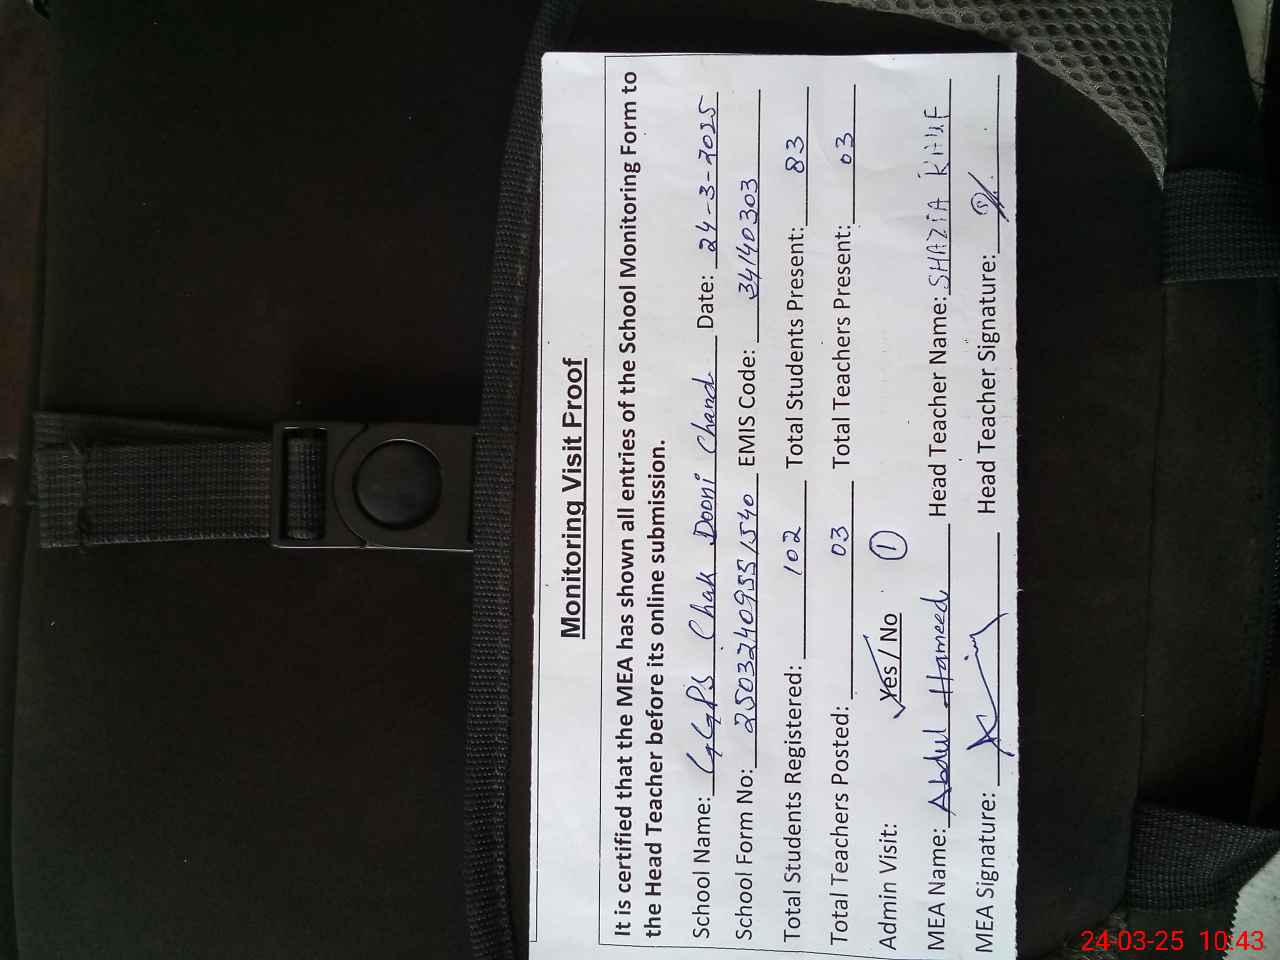 Monitoring Visit Proof
It is certified that the MEA has shown all entries of the School Monitoring Form to
the Head Teacher before its online submission.
School Name: GGPS Chak Dooni Chand Date: 24-3-2025
School Form No: 25032409551540 EMIS Code: 34140303
Total Students Registered: 102 Total Students Present: 83
Total Teachers Posted: 03 Total Teachers Present: 03
Admin Visit: Yes / No 1
MEA Name: Abdul Hameed Head Teacher Name: SHAZIA
MEA Signature: Head Teacher Signature:
24-03-25 10:43